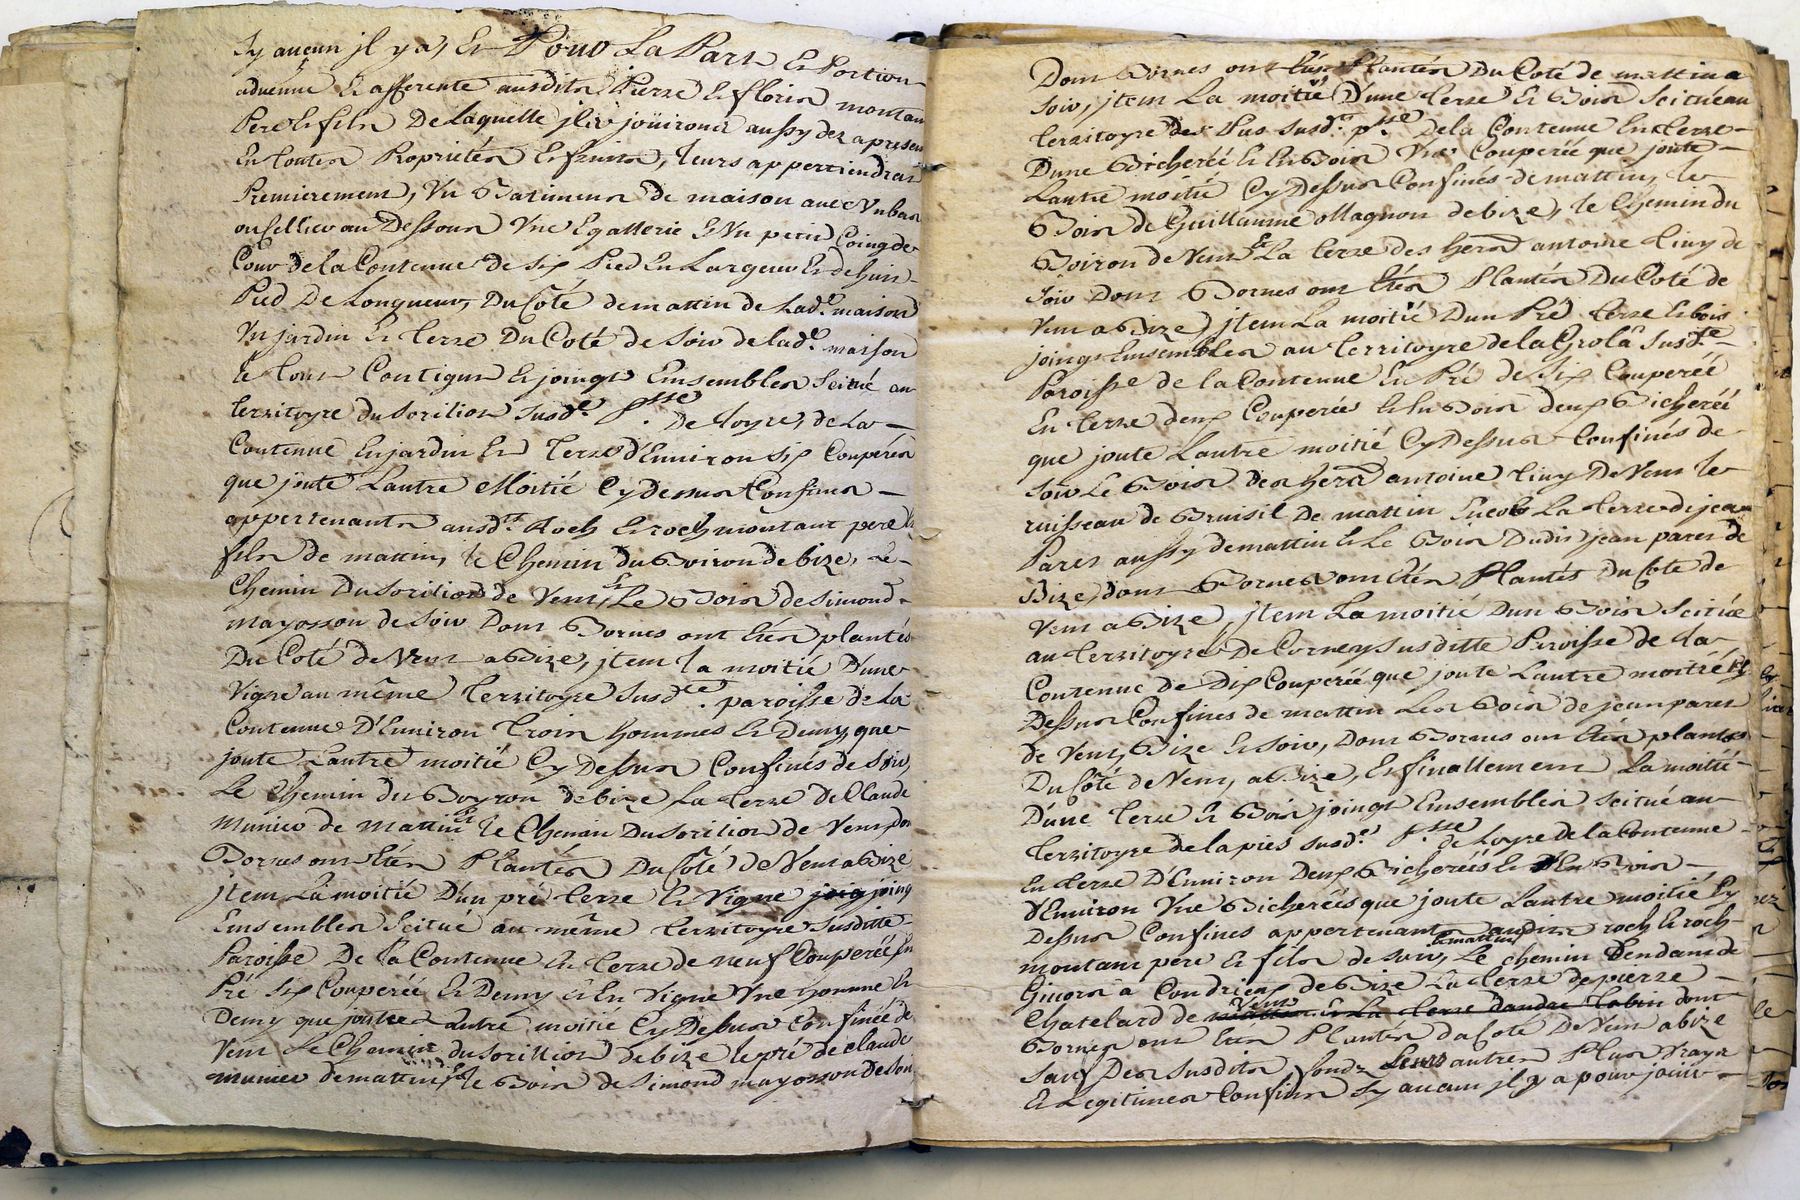 sy aucun jl y a, Et Pour La Part Et Portion
advenue Et afferente ausdits Pierre Et floris montan
Pere Et fils De Laquelle jls joüiront aussy dez apresen
En toutes Proprietés Et fruits, leurs appertiendrat
Premierement, Un Batiment de maison avec Un bas
ou sellier au Dessous Une Egallerie Et Un petit Coing de
Cour de la Contenue de six Pied En Largeur Et de huit
Pied De Longueur, Du Côté de mattin de Lad.e maison
Un jardin Et Terre Du Coté de soir de lad.e maison
le tout Contigus Et joingt Emsembles scitué au
territoyre du sorilion susd.e P.sse De Loyre, de La
Contenue En jardin Et Terre d'Environ six Couperés
que joute Lautre Moitié Cy Dessus Confinés
appertenants ausd.ts Roch Et roch montant pere Et
fils de mattin, le Chemin du Boiron de bize, le
Chemin Du sorilion de Vent, Et Le Bois de simond
mayosson de soir Dont Bornes ont Etés plantés
Du Coté de Vent a Bize, jtem la moitié D'une
Vigne au même Territoyre susd.te paroisse de La
Contenue D'Environ trois hommes Et Demy, que
joute Lautre moitié Cy Dessus Confinés de soir,
Le Chemin du Boyron de bize La terre De Claude
Munier de Mattin Et le Chemin Du sorilion de Vent, don
Bornes ont Etés Plantés Du Coté De Vent a Bize
jtem La moitié D'un pré terre Et Vigne joing
Emsembles scitué au même territoyre susditte
Paroisse De la Contenue En terre de neuf Couperée, En
Pré six Couperée Et Demy Et En Vigne Une homme Et
Demy que joute Lautre moitié Cy Dessus Confinée de
Vent Le Chemin du sorillion de bize le pré de claude
munier de mattin, Et le Bois de Simond mayosson de soi
Dont Bornes ont Etés Plantés Du Coté de mattin a
soir, jtem La moitié D'une terre Et Bois scitué au
territoyre des Pus susd.te p.sse De la Contenue En terre
D'une Bicherée Et En Bois Une Couperée que joute
Lautre moitié Cy Dessus Confinés de mattin, le
Bois de Guillaume Magnon de bize, le Chemin du
Boiron de Vent Et La terre des hers antoine tiny de
soir Dont Bornes ont Etés Plantés Du Coté de
Vent a Bize, jtem La moitié D'un Pré terre Et bois
joingt Emsembles au territoyre de la Grola susd.te
Paroisse de la Contenue En Pré de six Couperée
En terre deux Couperée Et En Bois deux Bicherée
que joute Lautre moitié Cy Dessus Confinés de
soir Le Bois des hers antoine tiny De Vent le
ruisseau de Bruisil De mattin La terre de jean
Paret aussy de mattin Et Le Bois Dudit jean paret de
Bize, dont Bornes ont Etés Plantés Du Coté de
Vent a Bize, jtem La moitié D'un Bois scitué
au territoyre De Corney susditte Paroisse de La
Contenue de Dix Couperée que joute Lautre moitié Cy
Dessus Confinés de mattin Les Bois de jean paret
de Vent, Bize Et soir, Dont Bornes ont Etés plantés
Du Coté de Vent, a Bize, Et finallement La moitié
D'une terre Et Bois joingt Emsembles scitué au
territoyre de la pies susd.e P.sse de Loyre de la Contenue
En terre D'Environ Deux Bicherées Et En Bois
D'Environ Une Bicherée que joute Lautre moitié Cy
Dessus Confinés appertenants ausdits roch Et roch
montant pere Et fils de soir, Et mattin Le chemin Tendant de
Givors a Condrieu de Bize La terre de pierre
Chatelard de Vent Et La terre dont
Bornes ont Etés Plantés du Coté De Vent a bize
sauf Des susdits fonds Leurs autres Plus Vrays
Et Legitimes Confins sy aucun jl y a pour jouir